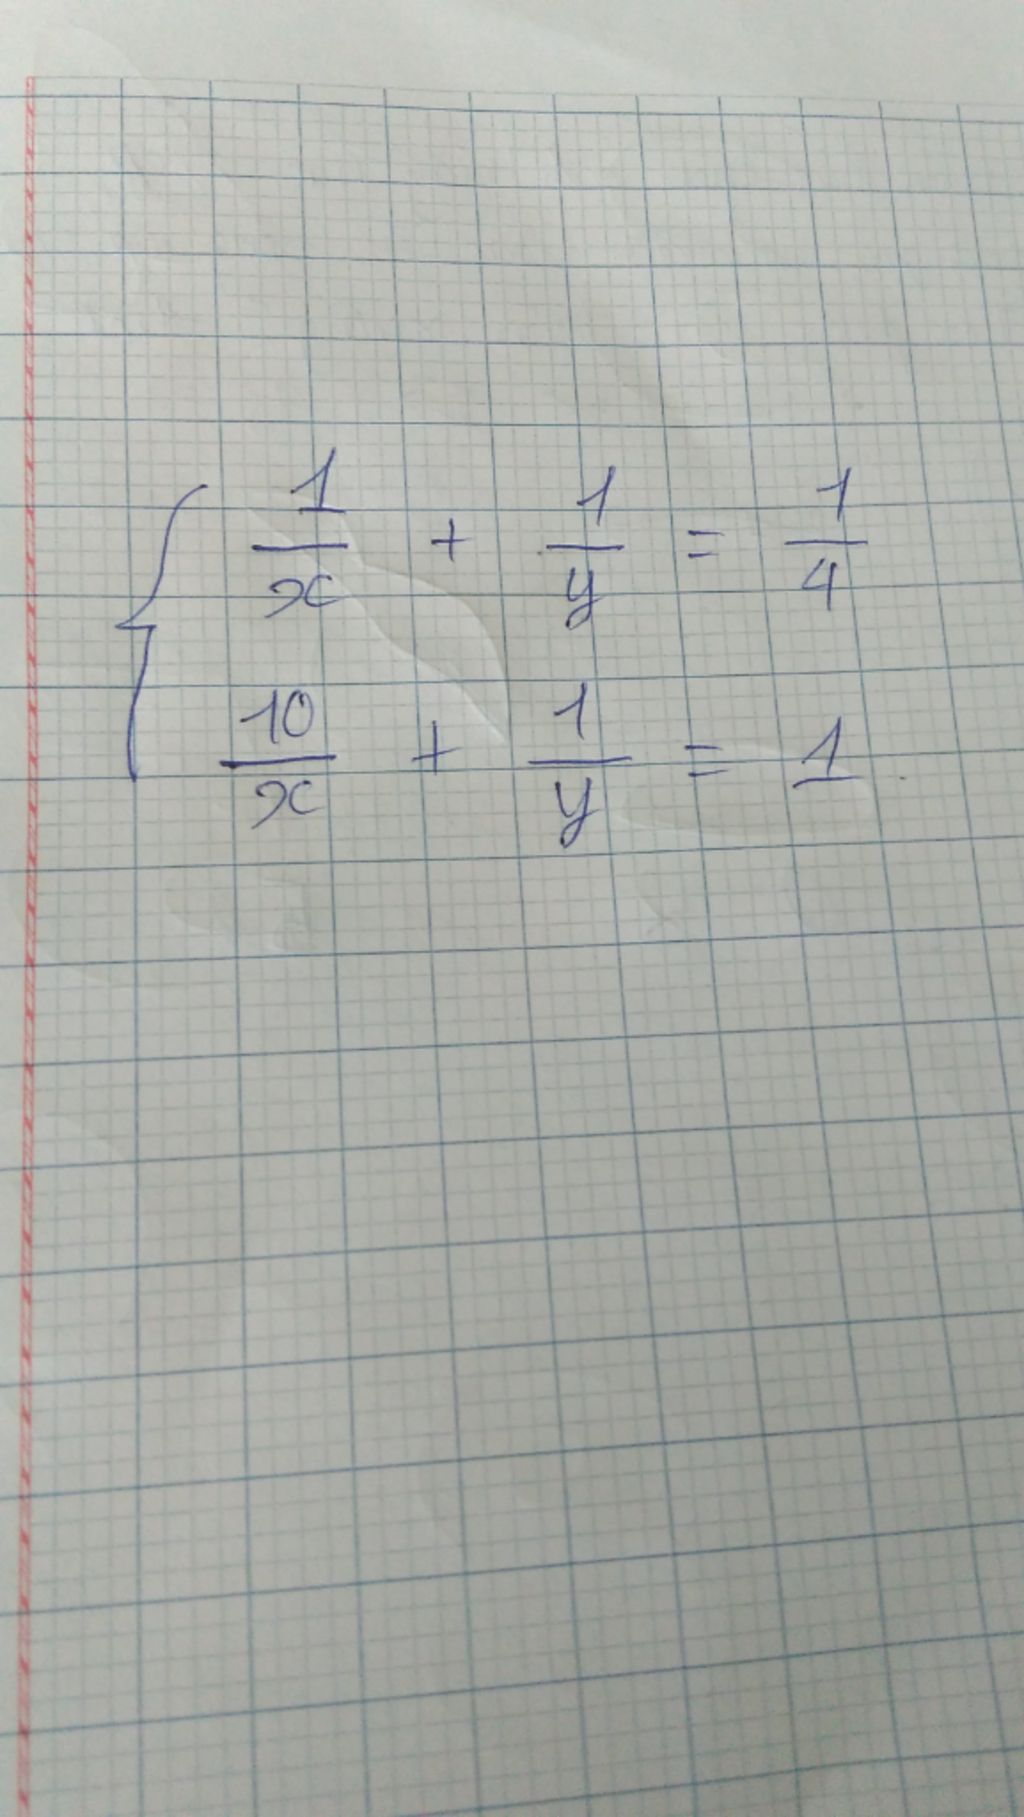 1/x + 1/y = 1/4
10/x + 1/y = 1